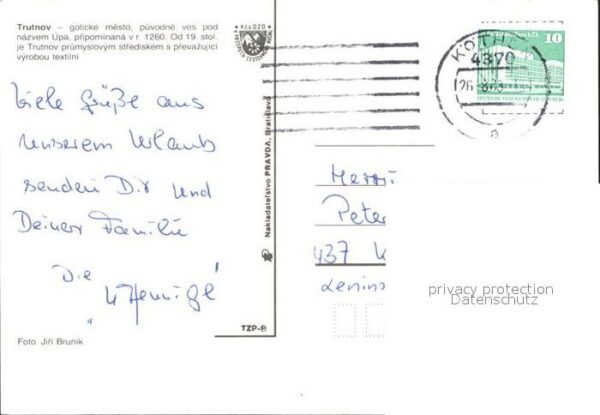 Trutnov – gotické město, původně ves pod
názvem Úpa, připomínaná v r. 1260. Od 19. stol.
je Trutnov průmyslovým střediskem s převažující
výrobou textilní
Kčs 0,20
10
KÖTHEN
4370
26
a
Viele Grüße aus
unserem Urlaub
senden Dir und
Deiner Familie
Die
Nakladateľstvo PRAVDA, Bratislava
Herrn
Peter
437 K
Lenins
privacy protection
Datenschutz
TZP-B
Foto Jiří Bruník